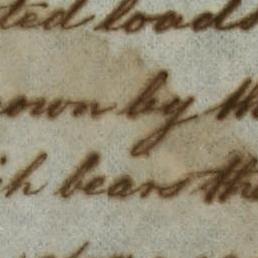 ted loads
own by th
ich bears the